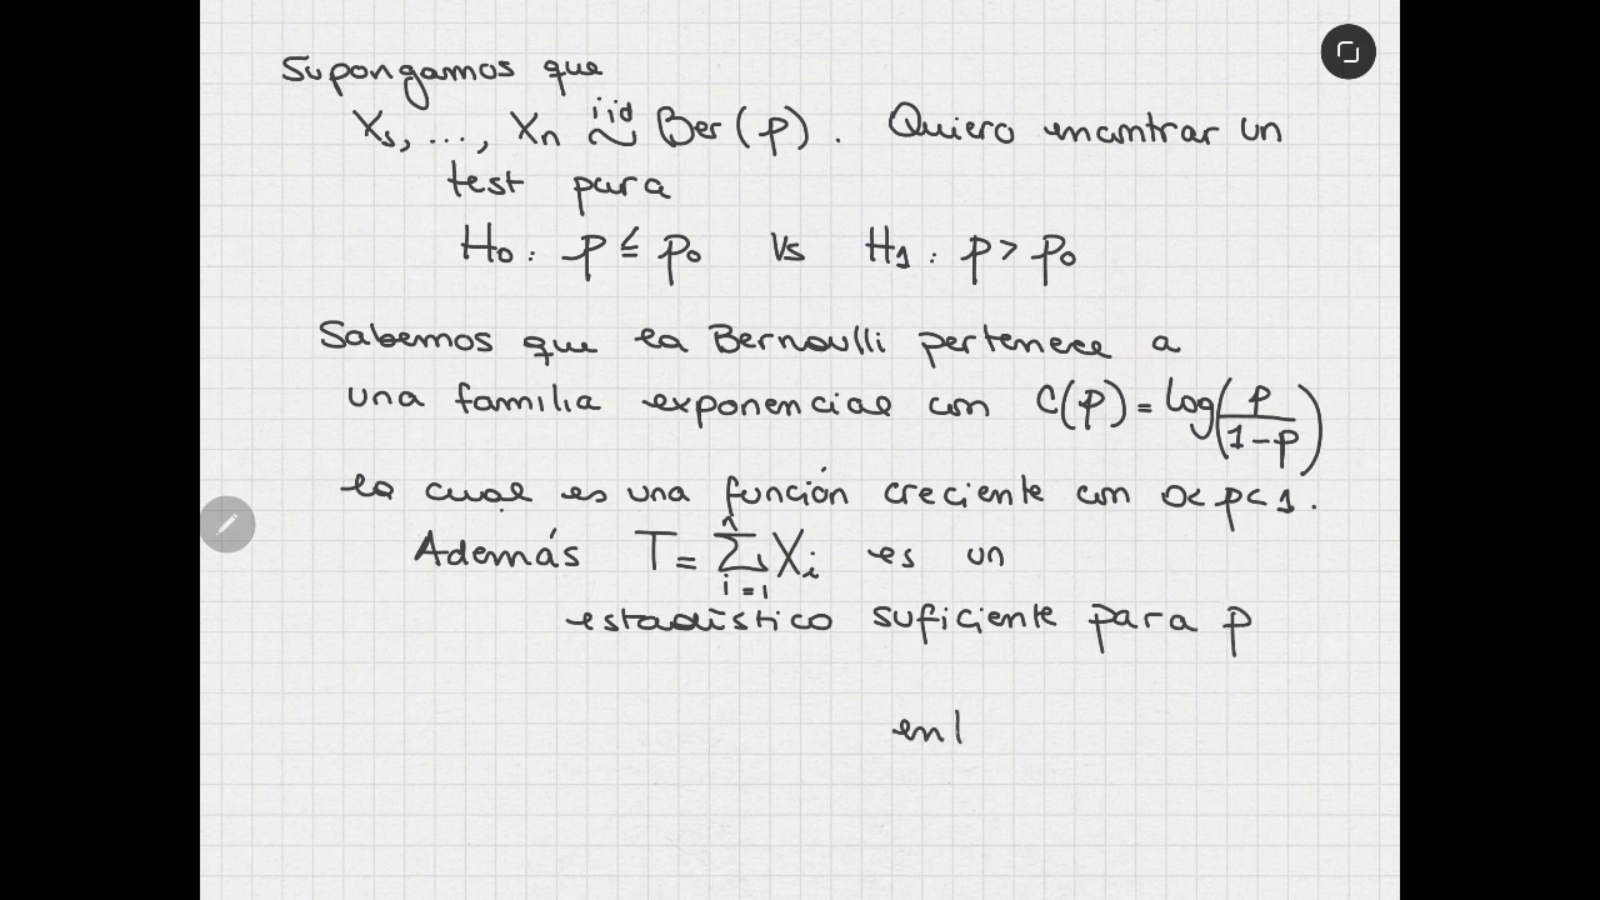 Supongamos que
X₁, ..., Xₙ iid ~ Ber(p). Quiero encontrar un
test para
H₀: p ≤ p₀ Vs H₁: p > p₀
Sabemos que la Bernoulli pertenece a
una familia exponencial con C(p) = log(p/(1-p))
la cual es una función creciente con 0<p<1.
Además T = Σᵢ₌₁ⁿ Xᵢ es un
estadístico suficiente para p
en l